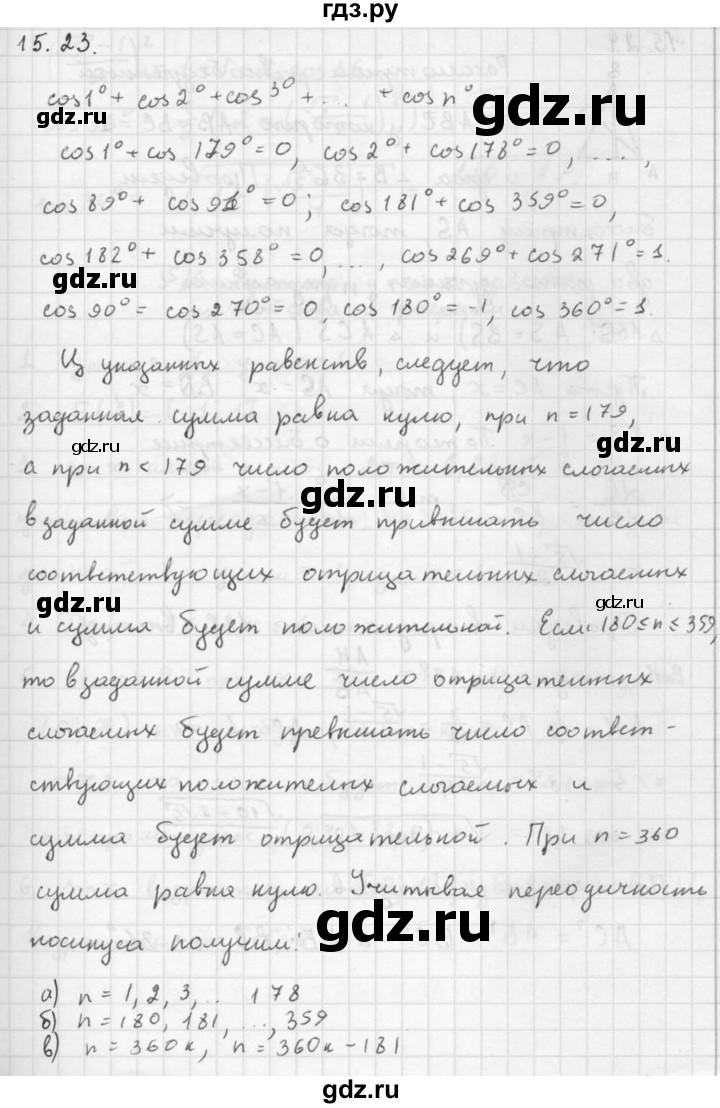 гдз.ру
15.23.
cos1° + cos2° + cos3° + ... + cosn°
cos1° + cos179° = 0, cos2° + cos178° = 0, ...,
cos89° + cos91° = 0; cos181° + cos359° = 0,
cos182° + cos358° = 0, ..., cos269° + cos271° = 1.
gdz.ru
cos90° = cos270° = 0, cos180° = -1, cos360° = 1.
Из указанных равенств, следует, что
заданная сумма равна нулю, при n = 179,
gdz.ru
gdz.ru
а при n < 179 число положительных слогаемых
gdz.ru
в заданной сумме будет привышать число
соответствующих отрицательных слогаемых
gdz.ru
gdz.ru
и сумма будет положительной. Если 180 ≤ n ≤ 359,
то в заданной сумме число отрицательных
слогаемых будет превышать число соответ-
gdz.ru
ствующих положителных слогаемых и
сумма будет отрицательной. При n = 360
gdz.ru
сумма равна нулю. Учитывая переодичность
gdz.ru
косинуса получим:
а) n = 1, 2, 3, .. 178
б) n = 180, 181, ..., 359
в) n = 360к, n = 360к - 181
gdz.ru
gdz.ru